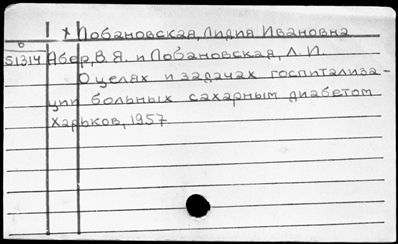 х Лобановская, Лидия Ивановна
S1314 Абер, В. Я. и Лобановская, Л. И.
О целях и задачах госпитализа-
ции больных сахарным диабетом
Харьков, 1957